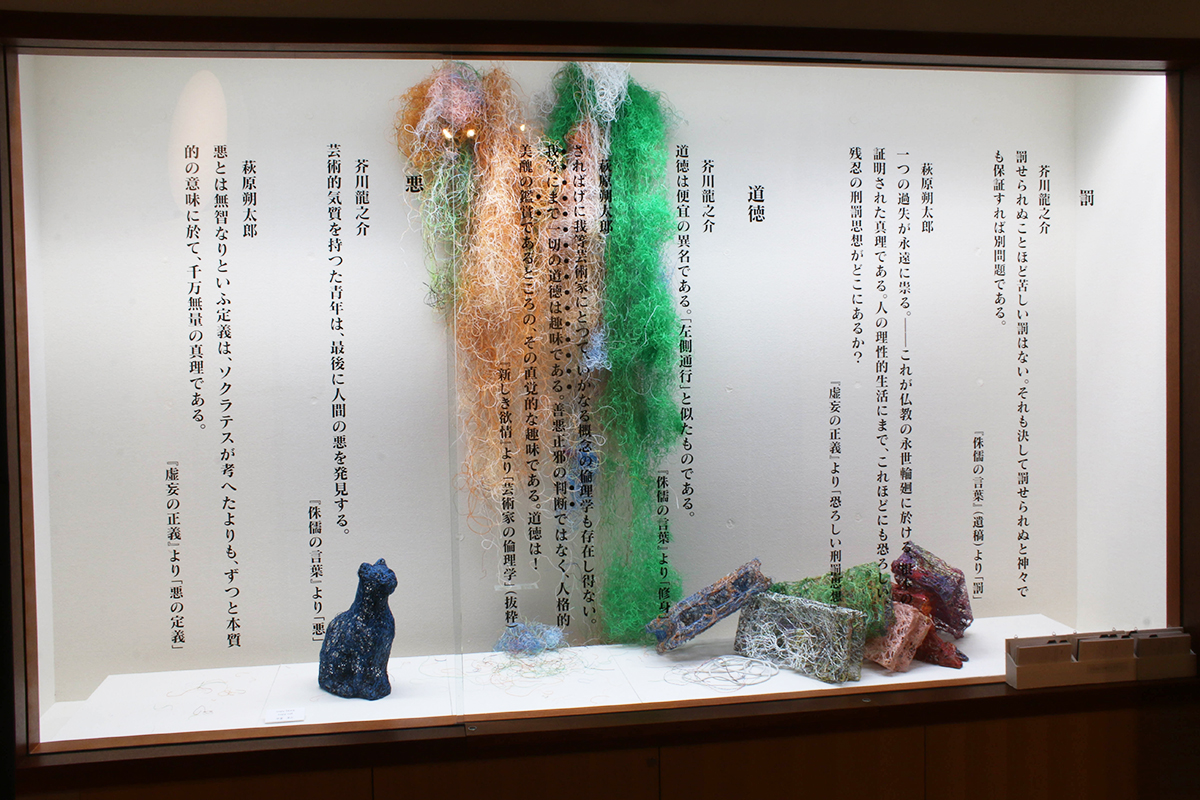 罰
芥川龍之介
罰せられぬことほど苦しい罰はない。それも決して罰せられぬと神々で
も保証すれば別問題である。
『侏儒の言葉』(遺稿)より「罰」
萩原朔太郎
一つの過失が永遠に祟る。――これが仏教の永世輪廻に於ける
証明された真理である。人の理性的生活にまで、これほどにも恐ろしい
残忍の刑罰思想がどこにあるか?
『虚妄の正義』より「恐ろしい刑罰思想
道徳
芥川龍之介
道徳は便宜の異名である。「左側通行」と似たものである。
『侏儒の言葉』より「修身
萩原朔太郎
さればげに我等芸術家にとつて、いかなる概念の倫理学も存在し得ない。
我等にまで一切の道徳は趣味である。善悪正邪の判断ではなく、人格的
美醜の鑑賞であるところの、その直覚的な趣味である。道徳は!
『新しき欲情』より「芸術家の倫理学」(抜粋)
悪
芥川龍之介
芸術的気質を持つた青年は、最後に人間の悪を発見する。
『侏儒の言葉』より「悪」
萩原朔太郎
悪とは無智なりといふ定義は、ソクラテスが考へたよりも、ずつと本質
的の意味に於て、千万無量の真理である。
『虚妄の正義』より「悪の定義」